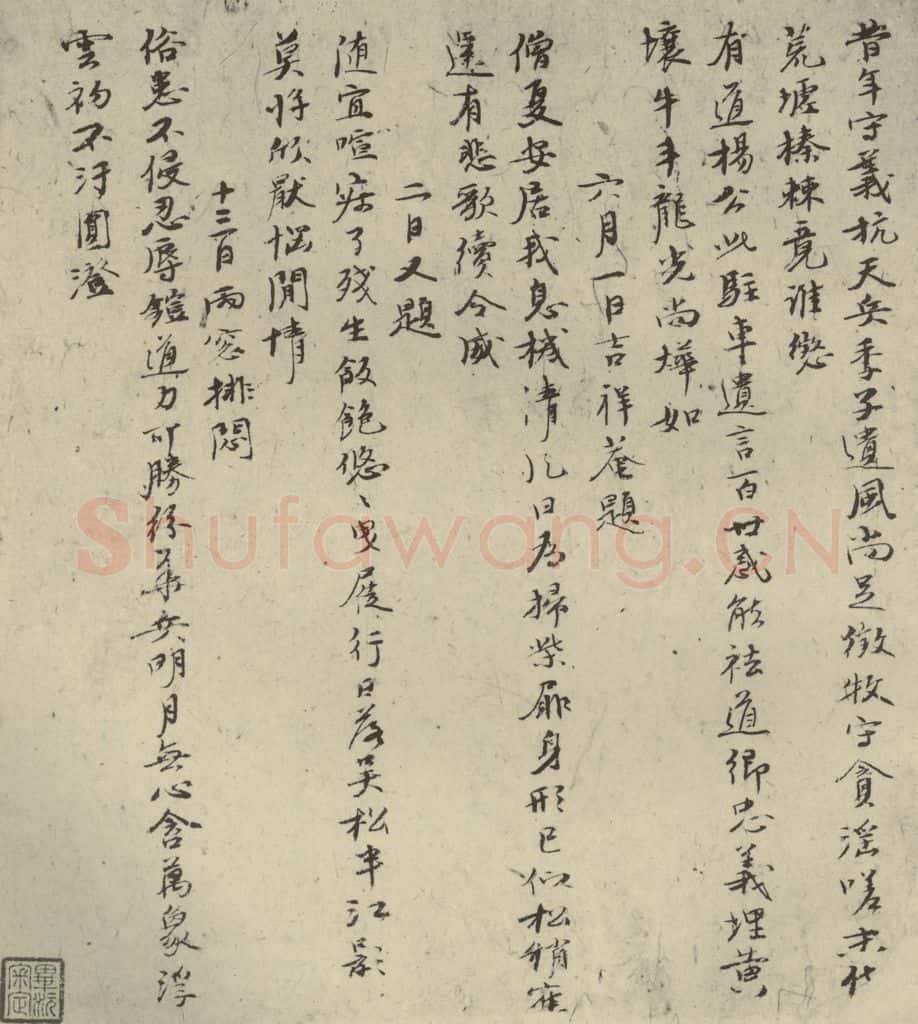 昔年守義抗天兵季子遺風尚足徵牧守貪淫嗟末代
荒墟榛棘竟誰懲
有道楊公此駐車遺言百世感能祛道卿忠義埋黃
壤牛斗龍光尚燁如
六月一日吉祥菴題
僧夏安居我息機清凡日為掃柴扉身形已似松稍寉
還有悲歌續令威
二日又題
隨宜喧寂了殘生飯飽悠〻曳屣行日落吴松半江影
莫將欣厭惱閒情
十三日雨窓排悶
俗患不侵忍辱鎧道力可勝兵明月無心含萬象浮
雲初不汙圓澄
Shufawang.CN
畢沅
審定